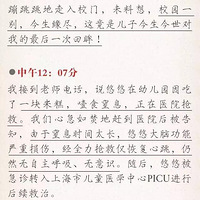 蹦跳跳地走入校门，未料想，校园一
别，今生缘尽，这竟是儿子今生今世对
我的最后一次回眸！
中午12：07分
我接到老师电话，说悠悠在幼儿园因吃
了一块米糕，噎食窒息，正在医院抢
救。我们心急如焚地赶到医院后被告
知，由于窒息时间太长，悠悠大脑功能
严重损伤，经全力抢救仅恢复心跳，仍
然无自主呼吸、无意识。随后，悠悠被
急诊转入上海市儿童医学中心PICU进行
后续救治。